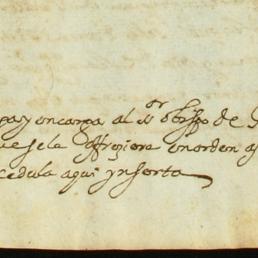 pa y encarga al sr obispo de
ue se le ofreziere en orden a
cedula aqui ynserta